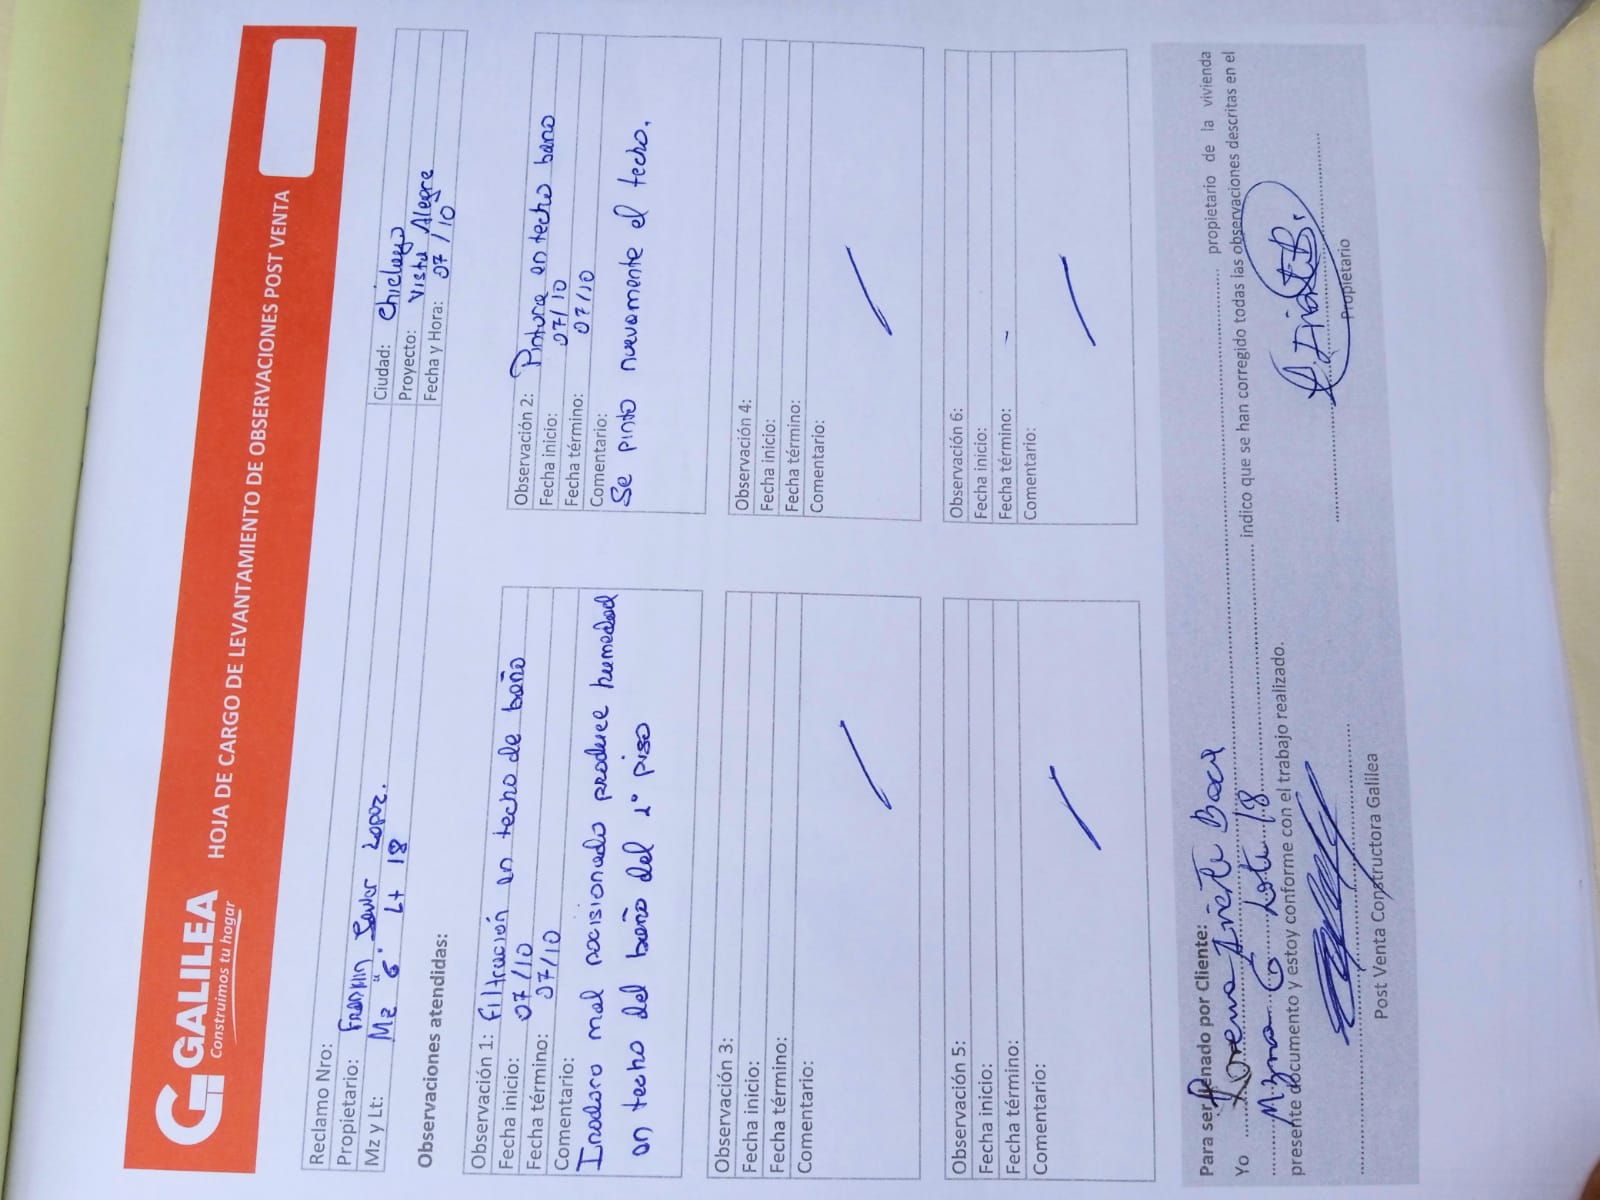 GALILEA
Construimos tu hogar
HOJA DE CARGO DE LEVANTAMIENTO DE OBSERVACIONES POST VENTA
Reclamo Nro:
Propietario: Franklin Lopez.
Mz y Lt: Mz "G" Lt 18
Ciudad: Chiclayo
Proyecto: Vista Alegre
Fecha y Hora: 07/10
Observaciones atendidas:
Observación 1: Filtración en techo de baño
Fecha inicio: 07/10
Fecha término: 07/10
Comentario:
Inodoro mal pocisionado produce humedad
en techo del baño del 1° piso
Observación 2: Pintura en techo baño
Fecha inicio: 07/10
Fecha término: 07/10
Comentario:
Se pinto nuevamente el techo.
Observación 3:
Fecha inicio:
Fecha término:
Comentario:
Observación 4:
Fecha inicio:
Fecha término:
Comentario:
Observación 5:
Fecha inicio:
Fecha término:
Comentario:
Observación 6:
Fecha inicio:
Fecha término: -
Comentario:
Para ser llenado por Cliente:
Yo Lorena Baca propietario de la vivienda
Mzna G Lote 18 indico que se han corregido todas las observaciones descritas en el
presente documento y estoy conforme con el trabajo realizado.
Post Venta Constructora Galilea
Propietario